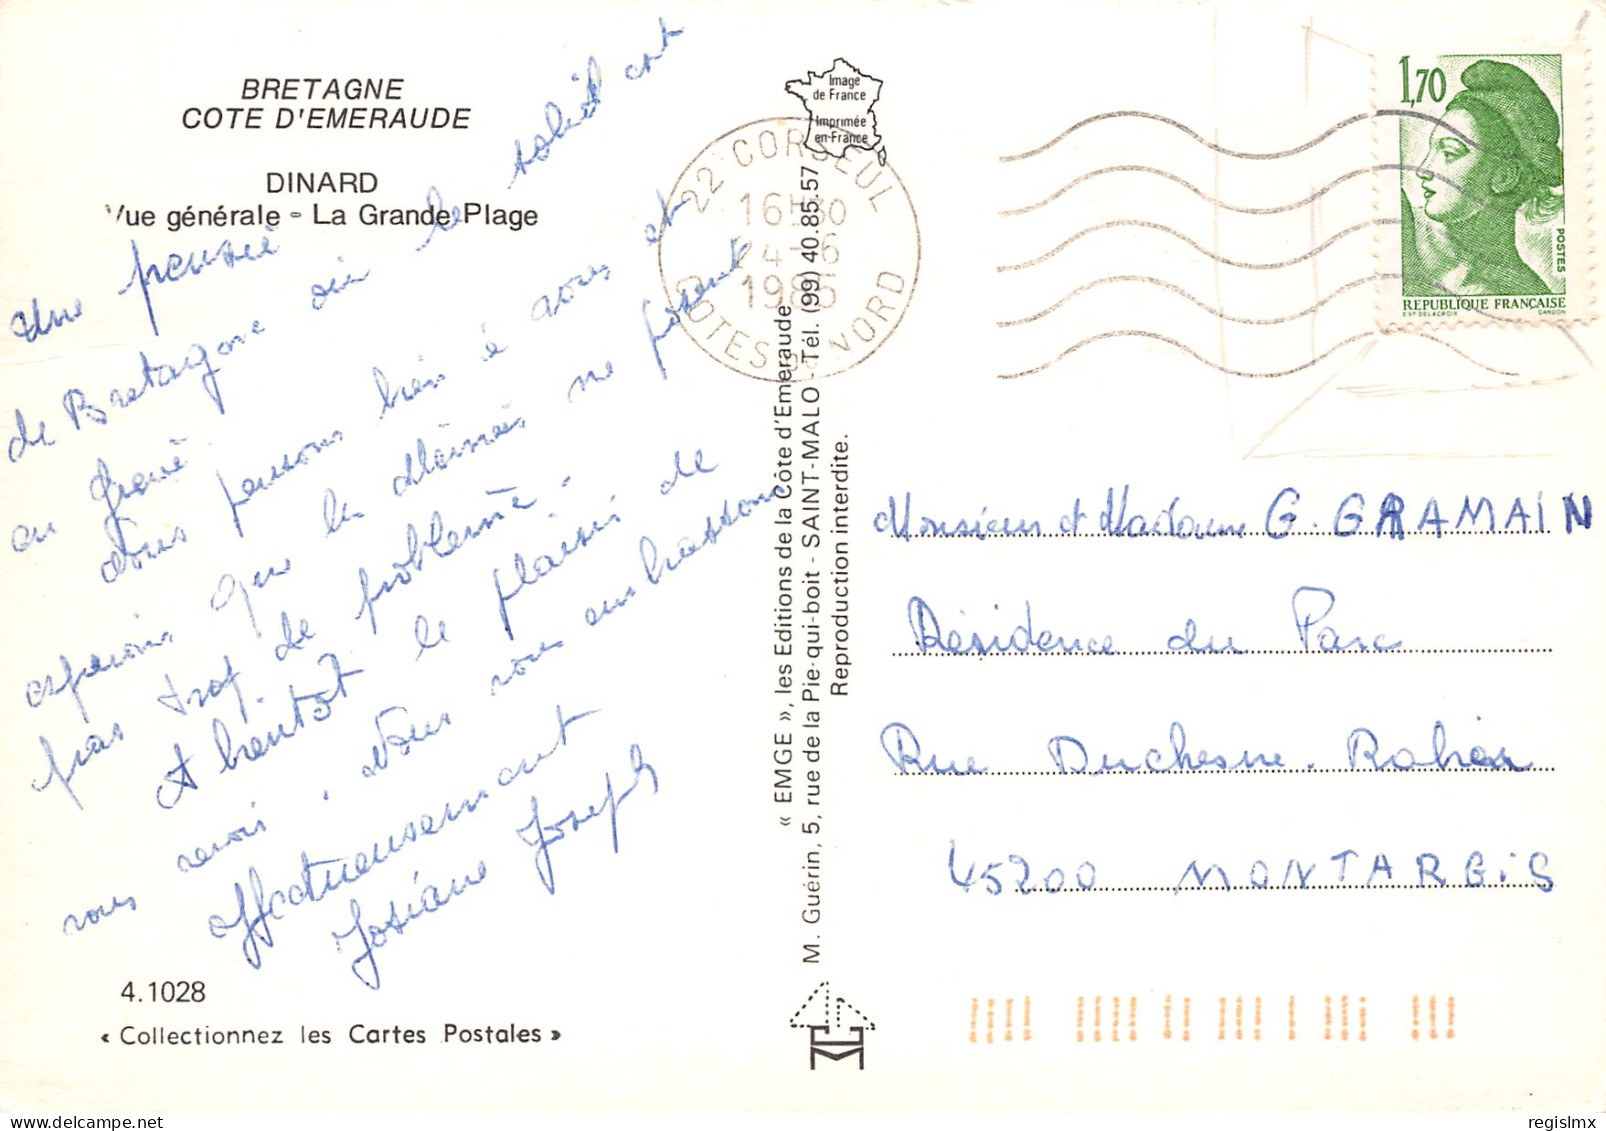 BRETAGNE
COTE D'EMERAUDE
DINARD
Vue générale - La Grande Plage
Une pensée
de Bretagne où le soleil est
au
Nous pensons bien à vous et
espérons que les ne fassent
pas trop de problème.
A bientôt le plaisir de
vous revoir. Nous vous embrassons
affectueusement
Josiane Joseph
4.1028
« Collectionnez les Cartes Postales »
« EMGE », les Editions de la Côte d'Emeraude
M. Guérin, 5, rue de la Pie-qui-boit - SAINT-MALO - Tél. (99) 40.85.57
Reproduction interdite.
Image
de France
Imprimée
en France
22 CORSEUL
16H30
24-6
1985
COTES DU NORD
1,70
POSTES
REPUBLIQUE FRANÇAISE
D'AP. DELACROIX GANDON
Monsieur et Madame G. GRAMAIN
Résidence du Parc
Rue Duchesne-Rabier
45200 MONTARGIS
regislmx